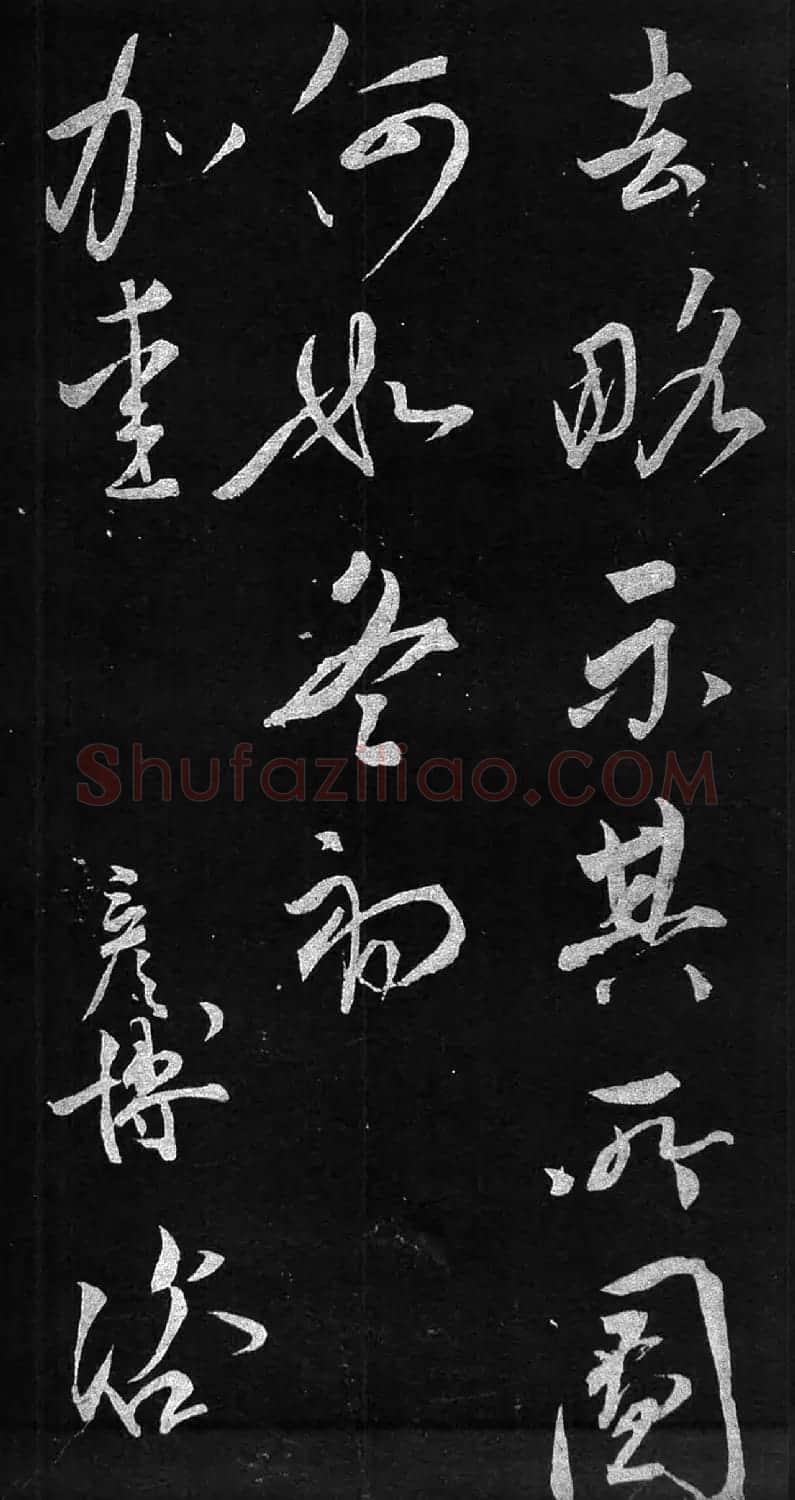 去略示其所圖
何如冬初
加重 彦博諮
Shufaziliao.COM